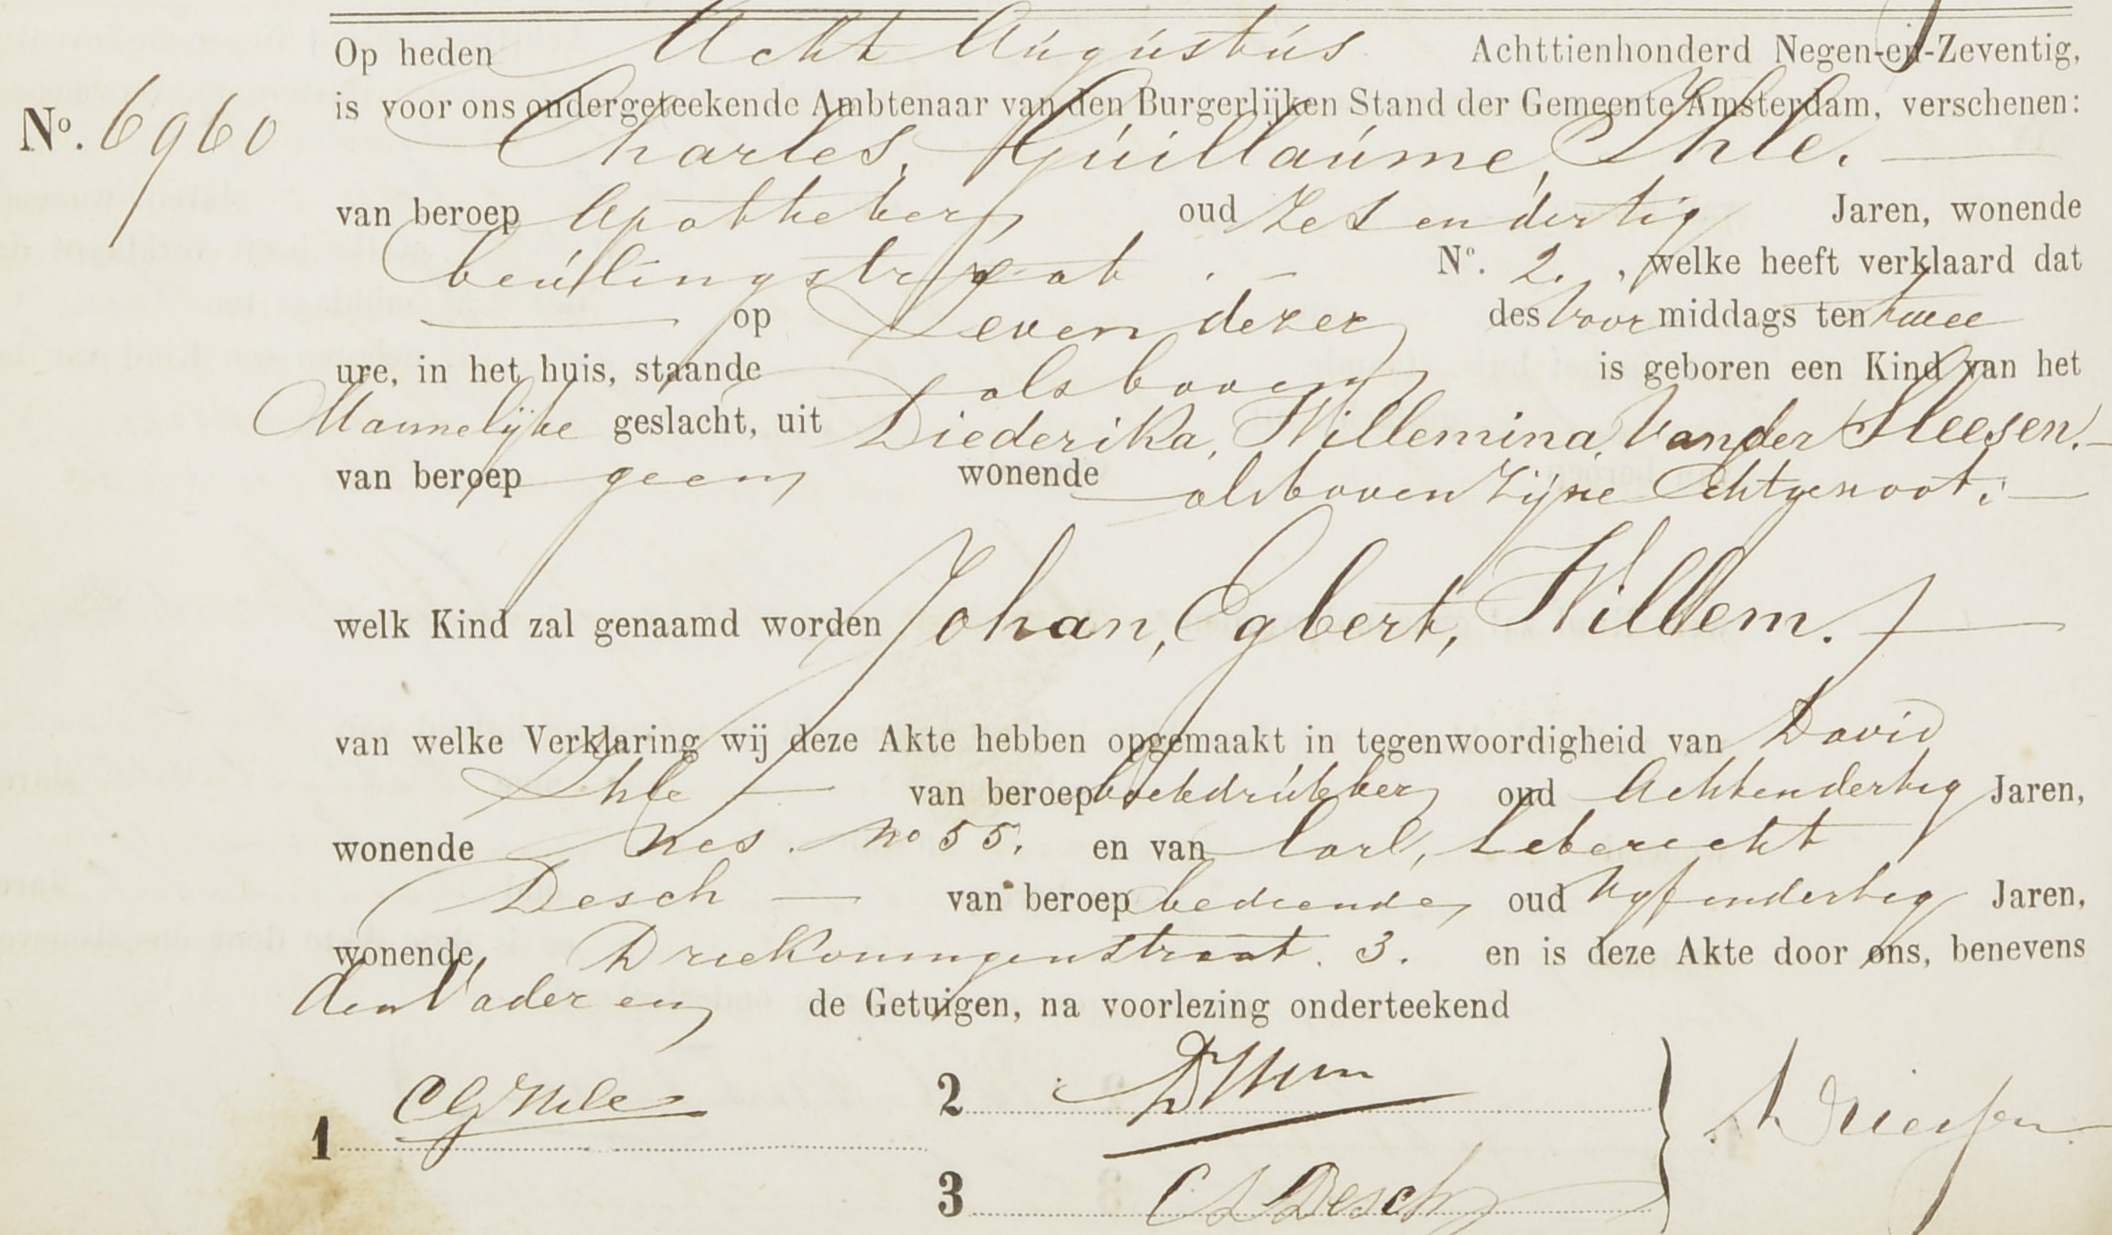 Op heden Acht Augustus Achttienhonderd Negen-en-Zeventig,
is voor ons ondergeteekende Ambtenaar van den Burgerlijken Stand der Gemeente Amsterdam, verschenen:
No. 6960
Charles, Guillaume, Ihle.
van beroep Apotheker oud Zes en dertig Jaren, wonende
beulingstraat No. 2. , welke heeft verklaard dat
op Zeven dezer des voor middags ten twee
ure, in het huis, staande als boven is geboren een Kind van het
Mannelijke geslacht, uit Diederika, Willemina, Van der Sleesen.
van beroep geen wonende als boven Zijne Echtgenoot.
welk Kind zal genaamd worden Johan, Egbert, Willem.
van welke Verklaring wij deze Akte hebben opgemaakt in tegenwoordigheid van David
Ihle van beroep boekdrukker oud Achtendertig Jaren,
wonende Nes. No 55. en van Carl, Leberecht
Desch van beroep bediende oud Vyfendertig Jaren,
wonende Driekoningenstraat. 3. en is deze Akte door ons, benevens
den Vader en de Getuigen, na voorlezing onderteekend
1 CGIhle 2
3 C L Desch